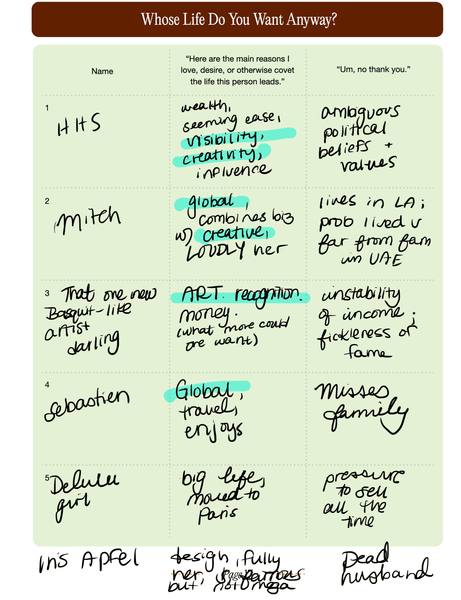 Whose Life Do You Want Anyway?
Name
"Here are the main reasons I
love, desire, or otherwise covet
the life this person leads."
"Um, no thank you."
1
HHS
wealth,
seeming ease,
visibility,
creativity,
influence
ambiguous
political
beliefs +
values
2
Mitch
global,
combines biz
w/ creative,
LOUDLY her
lives in LA;
prob lived v
far from fam
in UAE
3
That one new
Basquit-like
artist
darling
ART. recognition.
money.
(what more could
one want)
instability
of income;
fickleness of
fame
4
Sebastien
Global,
travel,
enjoys
Misses
family
5
Delulu
girl
big life,
moved to
Paris
pressure
to sell
all the
time
Iris Apfel
design, fully
her, is famous
but not mega
Dead
husband